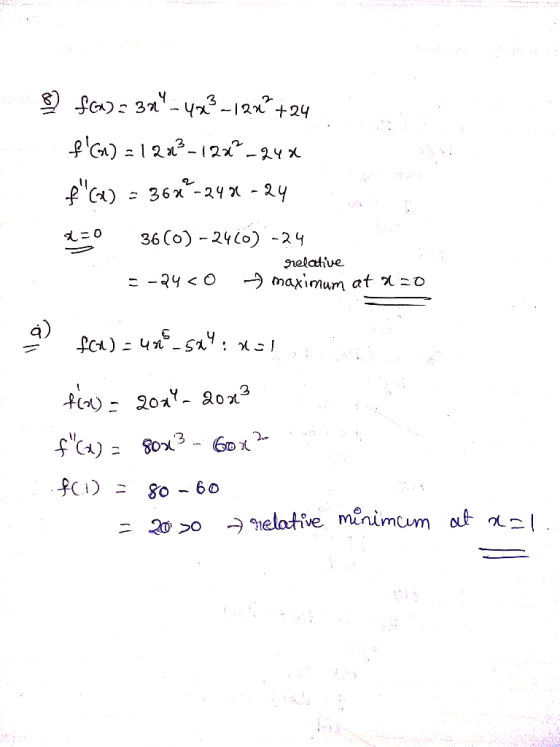 8) f(x) = 3x⁴ - 4x³ - 12x² + 24
f'(x) = 12x³ - 12x² - 24x
f''(x) = 36x² - 24x - 24
x=0 36(0) - 24(0) - 24
relative
= -24 < 0 → maximum at x=0
9) f(x) = 4x⁵ - 5x⁴ : x=1
f'(x) = 20x⁴ - 20x³
f''(x) = 80x³ - 60x²
f(1) = 80 - 60
= 20 > 0 → relative minimum at x=1.